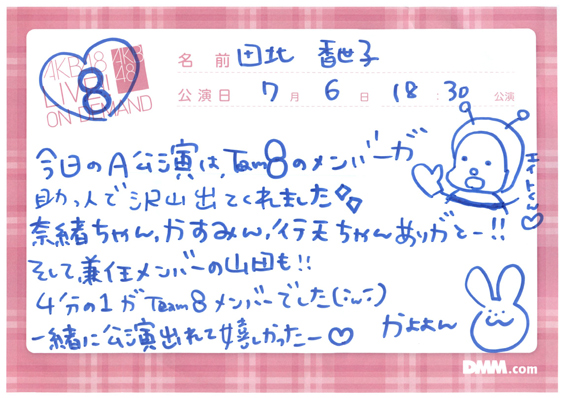 AKB48
LIVE!!
ON DEMAND
AKB
48
8
名 前 田北 香世子
公演日 7月 6日 18:30 公演
今日のA公演は、Team8のメンバーが
助っ人で沢山出てくれました
奈緒ちゃん、かすみん、行天ちゃんありがとー!!
そして兼任メンバーの山田も!!
4分の1がTeam8メンバーでした(:ω:)
一緒に公演出れて嬉しかったー♡
エイトくん♡
かよよん
DMM.com